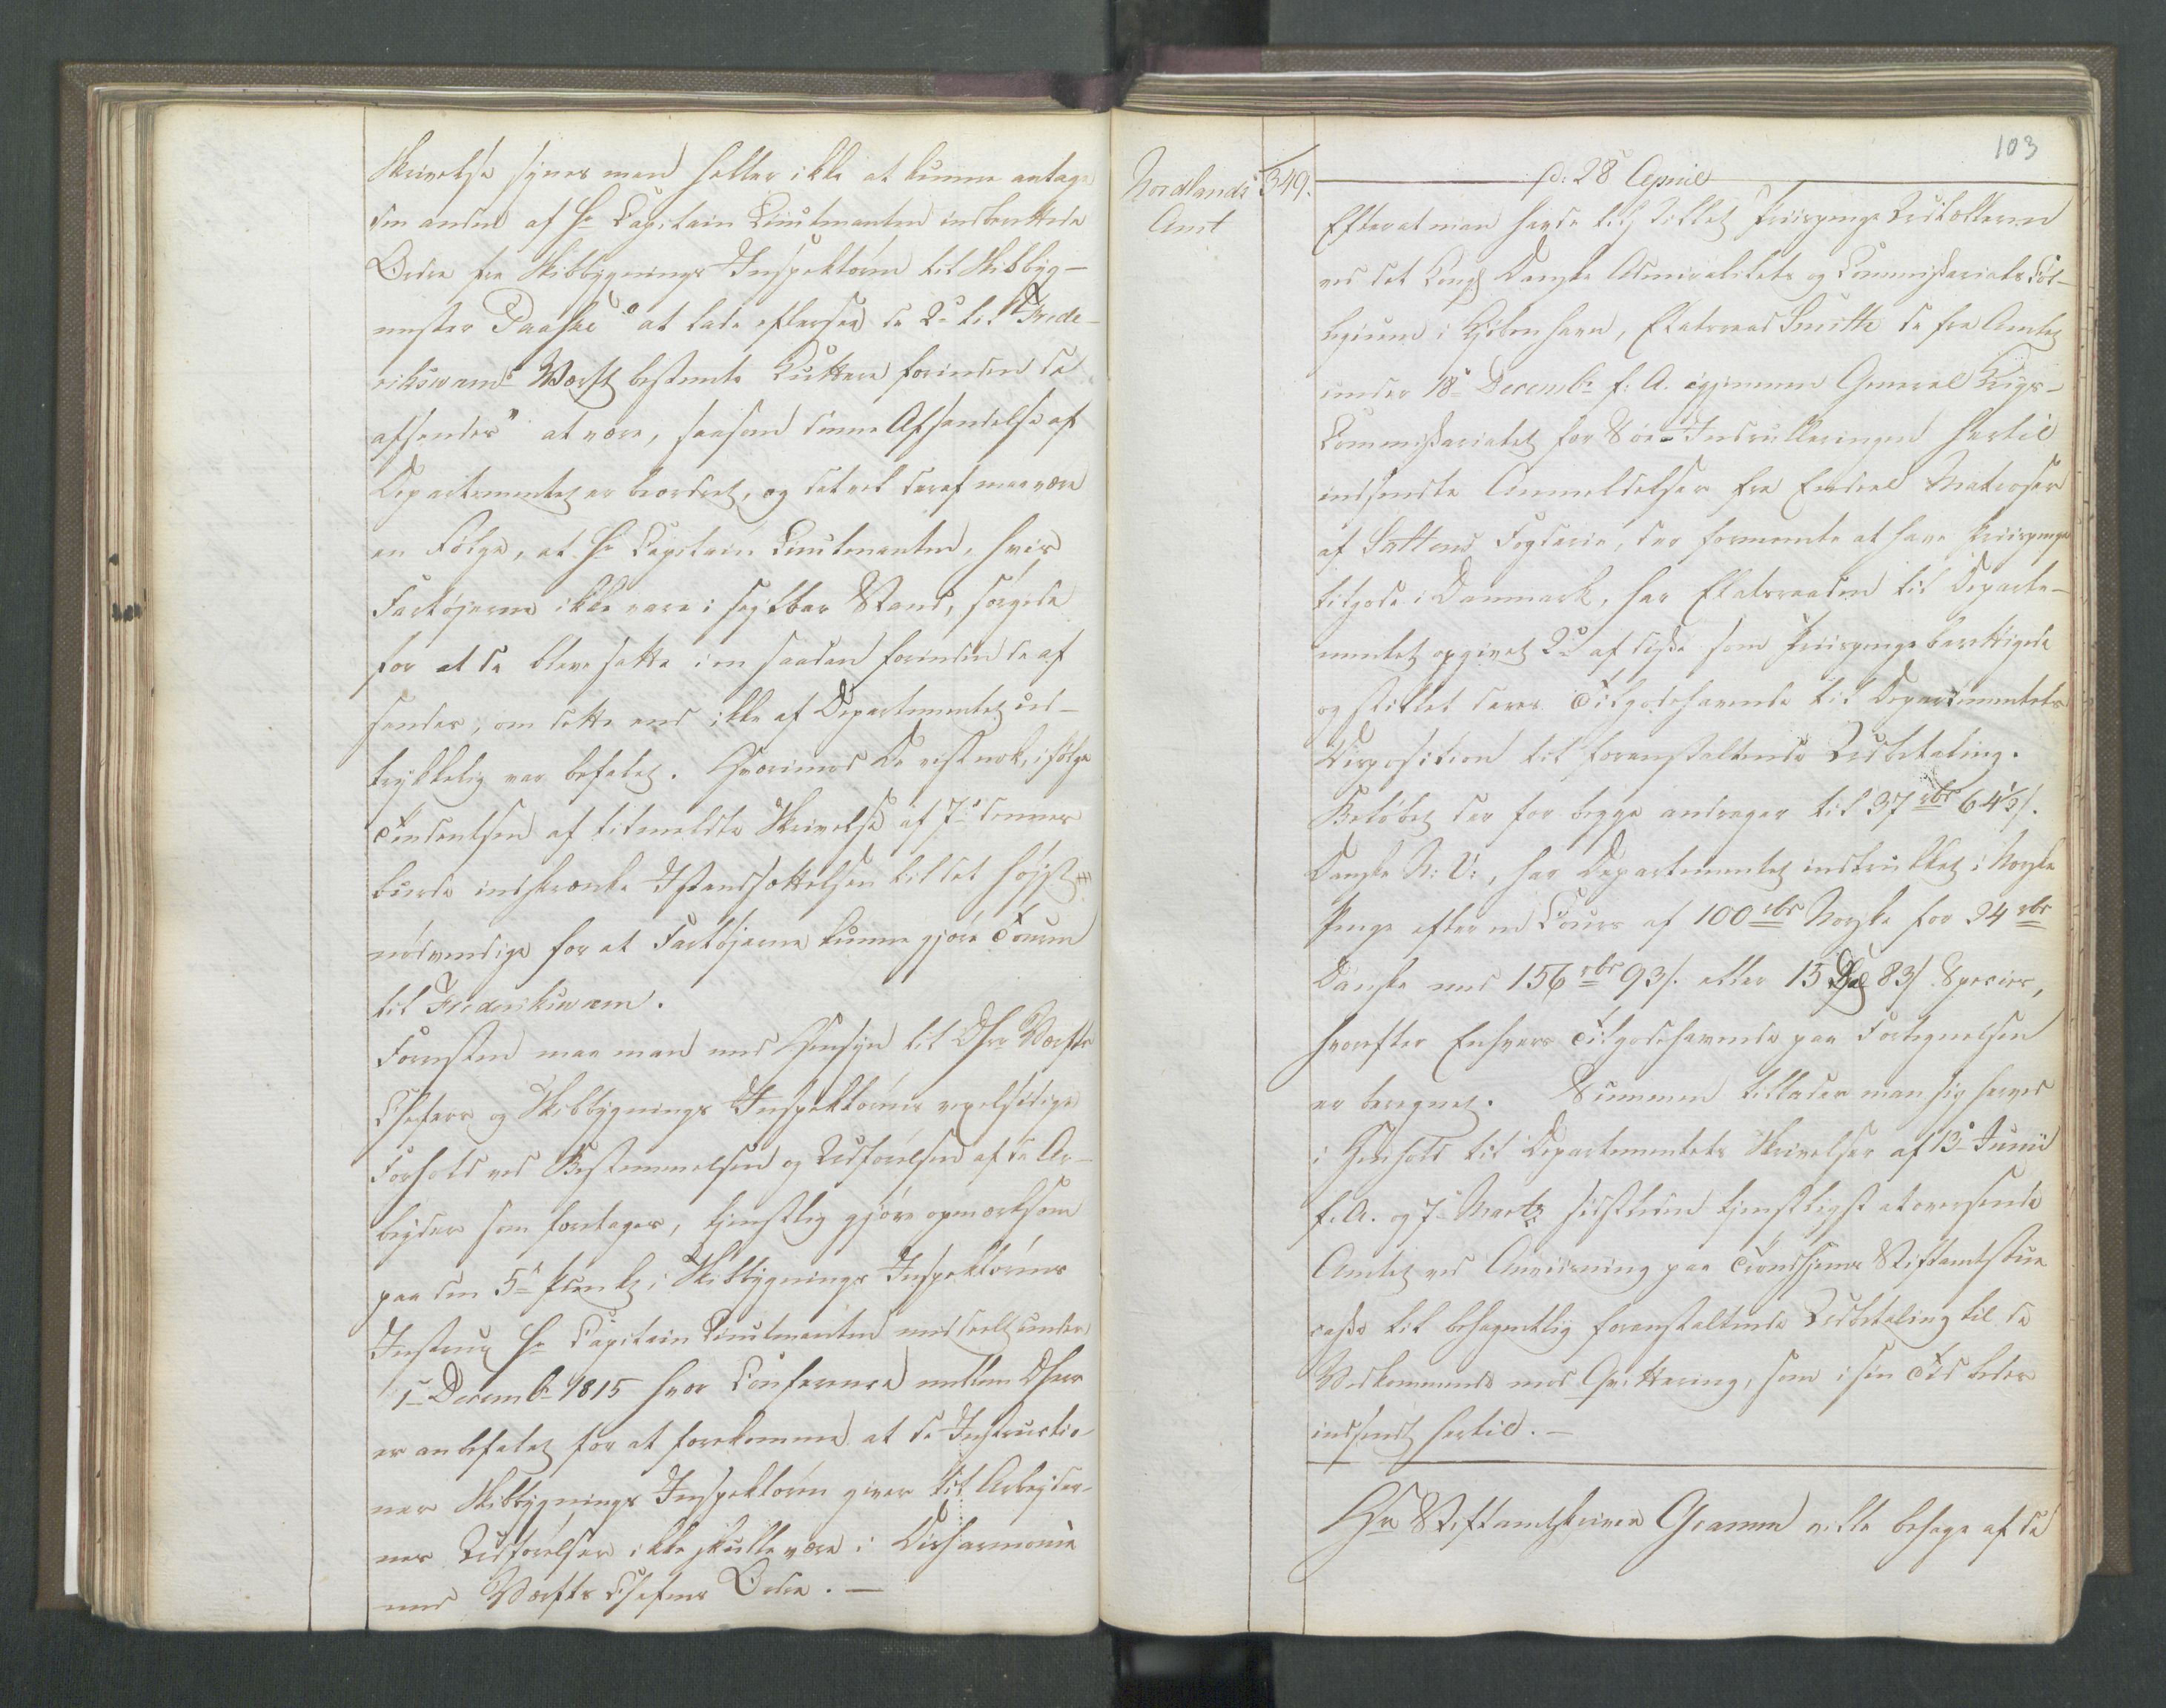 Skrivelse synes man heller ikke at kunne antage
den anden af Hr Capitain Lieutnanten indberettede
Ordre fra Skibbygnings Inspektören til Skibbyg-
mester Paaske "at lade efterses de 2de til Frede-
riksværns Værft bestemte Kuttere forinden de
afsendes" at være, saasom denne Afsendelse af
Departementet er beordret, og det vel deraf maa være
en Fölge, at Hr Capitain Lieutnanten, hvis
Fartöjerne ikke vare i sejlbar Stand, sörgede
for at de bleve satte i en saadan forinden de af
sendes, om dette end ikke af Departementet ud-
trykkelig var befalet. Hvorimod De vist nok, ifölge
Tendentsen af bemeldte Skrivelse af 7de dennes
burde indskrænke Istandsættelsen til det höjst
nödvendige for at Fartöjerne kunne gjöre Touren
til Frederiksværn.
Foresten maa man med Hensyn til Dhrr Værfts
Chefers og Skibbygnings Inspektörens vexelsidige
Forhold ved Bestemmelsen og Udförelsen af de Ar-
bejder som foretages, tjenstlig gjöre opmærksom
paa den 5te Punkt i Skibbygnings Inspektörens
Instrux Hr Capitain Lieutnanten meddeelt under
1ste Decembr 1815 hvor Conference mellem Dhrr
er anbefalet for at forekomme at de Instructio-
ner Skibbygnings Inspektören giver til Arbejder-
nes Udförelse ikke skulle være i Disharmonie
med Værfts Chefens Ordre. —
103
Nordlands
Amt
349.
d: 28 April
Efterat man havde Priispenge Udtælleren
ved det Kongl Danske Admiralitets og Commissariats Col-
legium i Kjöbenhavn, Etatsraad Smith de fra Amtet
under 18de Decembr f: A. igjennem General Krigs-
Commissariatet for Söe-Indrulleringen hertil
indsendte Anmeldelser fra Endeel Matroser
af Saltens Fogderie, der formeente at have Priispenge
tilgode i Danmark, har Etatsraaden til Departe-
mentet opgivet 2de af disse som Priispenge berettigede
og stillet deres Tilgodehavende til Departementets
Disposition til foranstaltende Udbetaling.
Belöbet der for begge andrager til 37 rbd 64½ s.
Danske N: V:, har Departementet indtrukket i Norske
Penge efter en Cours af 100 rbd Norske for 24 rbd
Danske med 156 rbd 93 s. eller 15 Spd 83 s Species,
hvorefter Enhvers Tilgodehavende paa Fortegnelsen
er beregnet. Summen tillader man sig herved
i Henhold til Departementets Skrivelser af 13de Junii
f. A. og 7de Marts sidstleden tjenstligst at oversende
Amtet ved Anviisning paa Trondhjems Stiftamtstue
casse til behagentlig foranstaltende Udbetaling til de
Vedkommende mod Qvittering, som i sin Tid bedes
indsendt hertil. —
Hr Stiftamtskriver Gramm ville behage af de